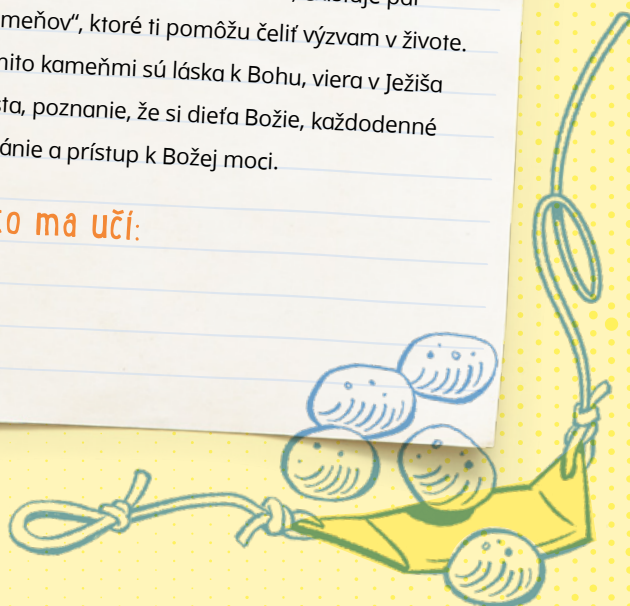 meňov“, ktoré ti pomôžu čeliť výzvam v živote.
mito kameňmi sú láska k Bohu, viera v Ježiša
sta, poznanie, že si dieťa Božie, každodenné
ánie a prístup k Božej moci.
to ma učí: